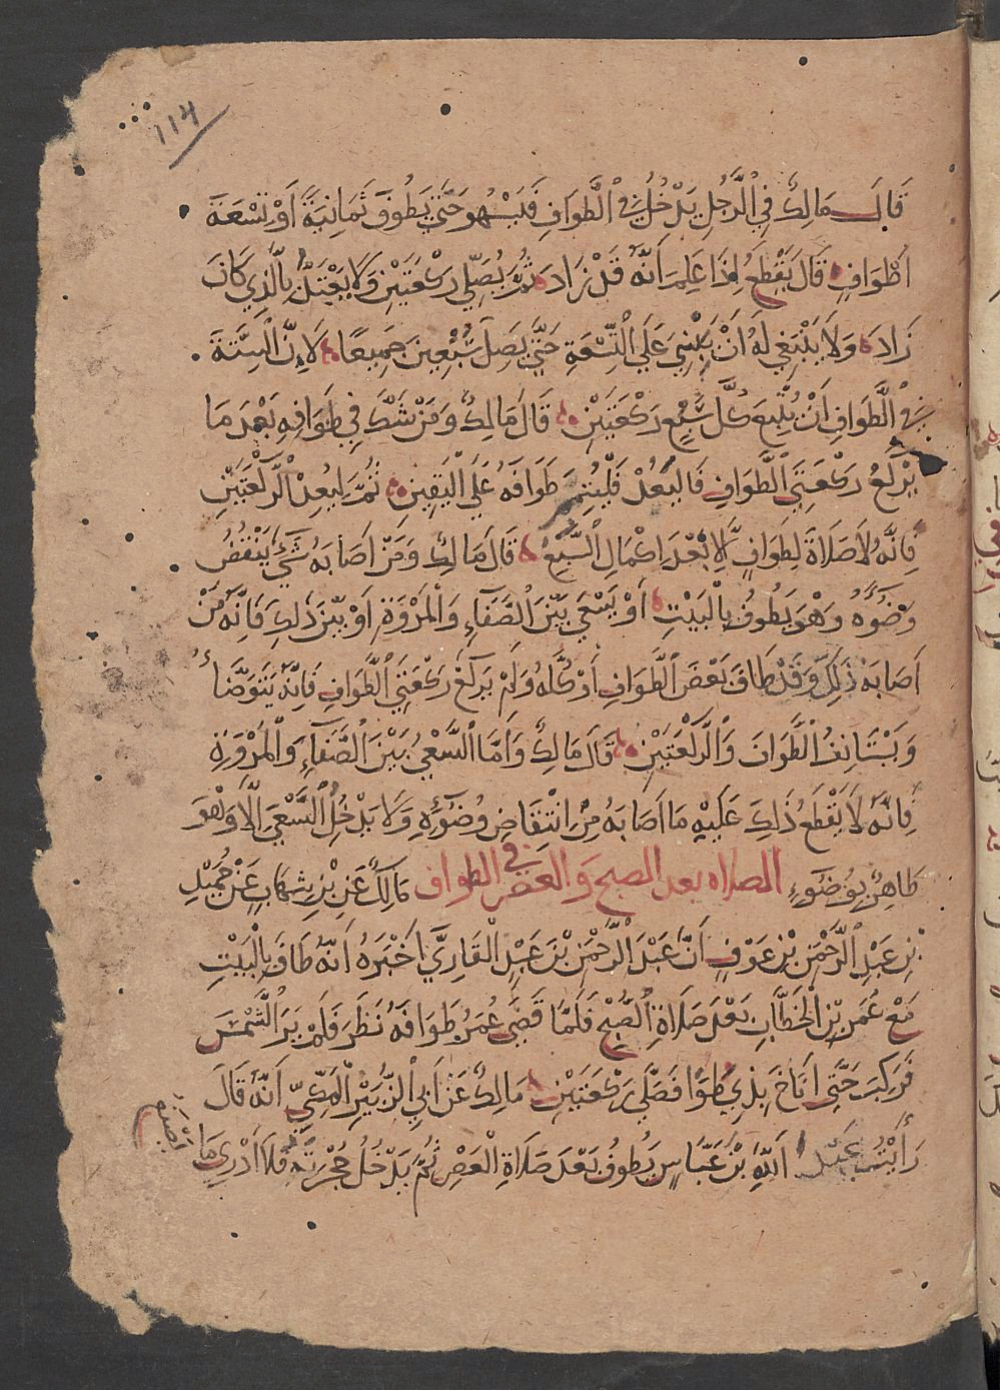 114
قَالَ مَالِكٌ فِي الرَّجُلِ يَدْخُلُ فِي الطَّوَافِ فَيَسْهُو حَتَّى يَطُوفَ ثَمَانِيَةً أَوْ تِسْعَةَ
أَطْوَافٍ قَالَ يَقْطَعُ إِذَا عَلِمَ أَنَّهُ قَدْ زَادَ ثُمَّ يُصَلِّي رَكْعَتَيْنِ وَلَا يَعْتَدُّ بِالَّذِي كَانَ
زَادَ وَلَا يَنْبَغِي لَهُ أَنْ يَبْنِيَ عَلَى التِّسْعَةِ حَتَّى يَصِلَ سُبْعَيْنِ جَمِيعًا لِأَنَّ السُّنَّةَ
فِي الطَّوَافِ أَنْ يُتْبِعَ كُلَّ سُبْعٍ رَكْعَتَيْنِ قَالَ مَالِكٌ وَمَنْ شَكَّ فِي طَوَافِهِ بَعْدَ مَا
يَرْكَعُ رَكْعَتَيِ الطَّوَافِ فَالْيَعُدْ فَلْيُتِمَّ طَوَافَهُ عَلَى الْيَقِينِ ثُمَّ لِيُعِدْ الرَّكْعَتَيْنِ
فَإِنَّهُ لَا صَلَاةَ لِطَوَافٍ إِلَّا بَعْدَ إِكْمَالِ السُّبْعِ قَالَ مَالِكٌ وَمَنْ أَصَابَهُ شَيْءٌ يَنْقُضُ
وُضُوءَهُ وَهْوَ يَطُوفُ بِالْبَيْتِ أَوْ يَسْعَى بَيْنَ الصَّفَاءِ وَالْمَرْوَةِ أَوْ بَيْنَ ذَلِكَ فَإِنَّهُ مَنْ
أَصَابَهُ ذَلِكَ وَقَدْ طَافَ بَعْضَ الطَّوَافِ أَوْ كُلَّهُ وَلَمْ يَرْكَعْ رَكْعَتَيِ الطَّوَافِ فَإِنَّهُ يَتَوَضَّأُ
وَيَسْتَأنِفُ الطَّوَافَ وَالرَّكْعَتَيْنِ قَالَ مَالِكٌ وَأَمَّا السَّعْيُ بَيْنَ الصَّفَاءِ وَالْمَرْوَةِ
فَإِنَّهُ لَا يَقْطَعُ ذَلِكَ عَلَيْهِ مَا أَصَابَهُ مِنِ انْتِقَاضِ وُضُوءِهِ وَلَا يَدْخُلُ السَّعْيَ إِلَّا وَهْوَ
طَاهِرٌ بِوُضُوءٍ الصلاه بعد الصبح وَالعصر في الطواف مَالِكٌ عَنِ بْنِ شِهَابٍ عَنْ حُمَيْدِ
بْنِ عَبْدِ الرَّحْمَنِ بْنِ عَوْفٍ أَنَّ عَبْدَ الرَّحْمَنِ بْنَ عَبْدٍ الْقَارِيَّ أَخْبَرَهُ أَنَّهُ طَافَ بِالْبَيْتِ
مَعَ عُمَرَ بْنِ الْخَطَّابِ بَعْدَ صَلَاةِ الصُّبْحِ فَلَمَّا قَضَى عُمَرُ طَوَافَهُ نَظَرَ فَلَمْ يَرَ الشَّمْسَ
فَرَكِبَ حَتَّى أَنَاخَ بِذِي طُوًا فَصَلَّى رَكْعَتَيْنِ مَالِكٌ عَنْ أَبِي الزُّبَيْرِ الْمَكِّيِّ أَنَّهُ قَالَ
رَأَيْتُ عَبْدَ اللَّهِ بْنَ عَبَّاسٍ يَطُوفُ بَعْدَ صَلَاةِ الْعَصْرِ ثُمَّ يَدْخُلُ حُجْرَتَهُ فَلَا أَدْرِي مَا